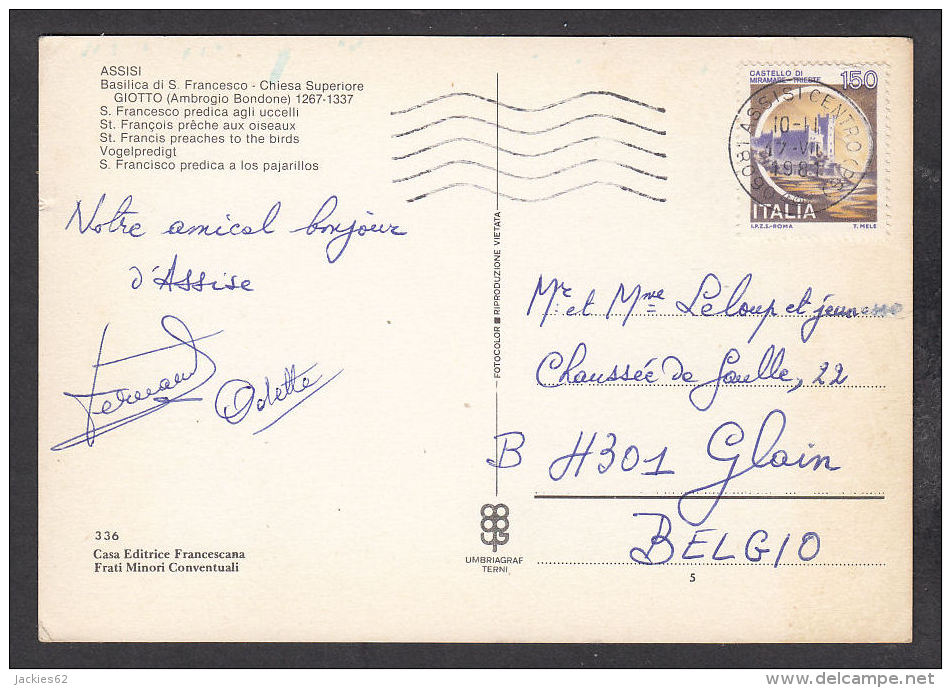 ASSISI
Basilica di S. Francesco - Chiesa Superiore
GIOTTO (Ambrogio Bondone) 1267-1337
S. Francesco predica agli uccelli
St. François prêche aux oiseaux
St. Francis preaches to the birds
Vogelpredigt
S. Francisco predica a los pajarillos
Notre amical bonjour
d'Assise
Fernand
Odette
336
Casa Editrice Francescana
Frati Minori Conventuali
FOTOCOLOR ■ RIPRODUZIONE VIETATA
UMBRIAGRAF
TERNI
CASTELLO DI
MIRAMARE-TRIESTE
150
ITALIA
I.P.Z.S.-ROMA T. MELE
ASSISI CENTRO (PG)
10-11
1981
Mr et Mme Leloup et jeunesse
Chaussée de Gaulle, 22
B 4301 Glain
BELGIO
5
Jackies62
delcampe.net